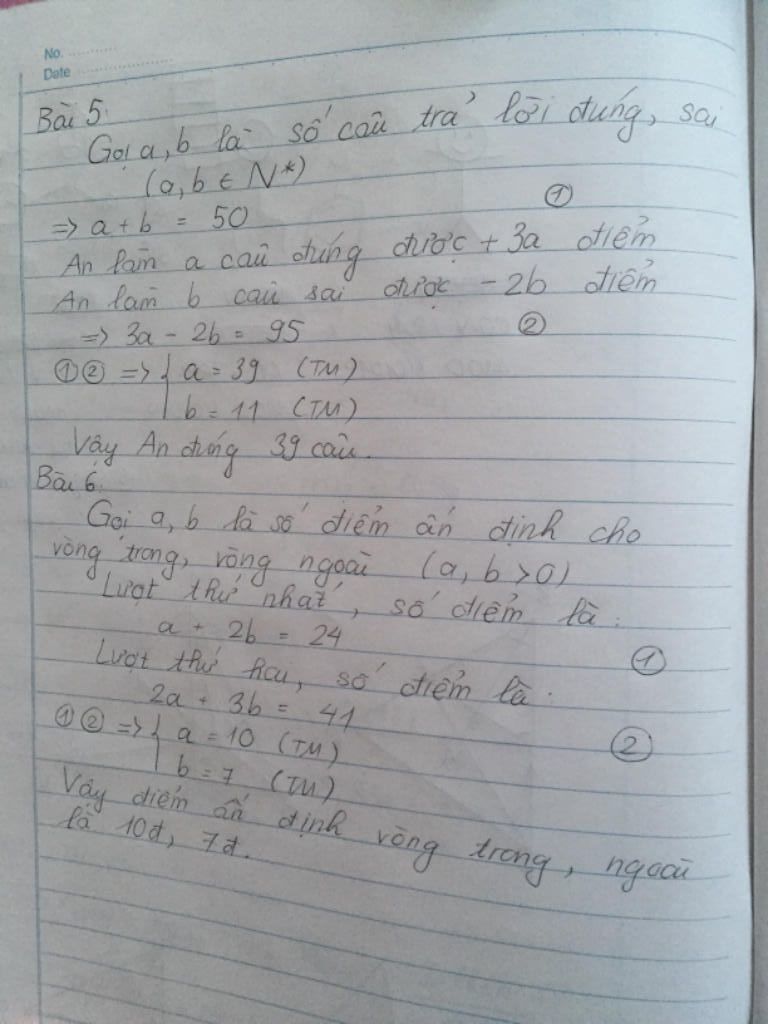 No. ............
Date ..................
Bài 5.
Gọi a, b là số câu trả lời đúng, sai
(a, b ∈ N*)
=> a + b = 50 ①
An làm a câu đúng được + 3a điểm
An làm b câu sai được - 2b điểm
=> 3a - 2b = 95 ②
①② => { a = 39 (TM)
b = 11 (TM)
Vậy An đúng 39 câu.
Bài 6
Gọi a, b là số điểm ấn định cho
vòng trong, vòng ngoài (a, b > 0)
Lượt thứ nhất, số điểm là:
a + 2b = 24 ①
Lượt thứ hai, số điểm là:
2a + 3b = 41 ②
①② => { a = 10 (TM)
b = 7 (TM)
Vậy điểm ấn định vòng trong, ngoài
là 10đ, 7đ.